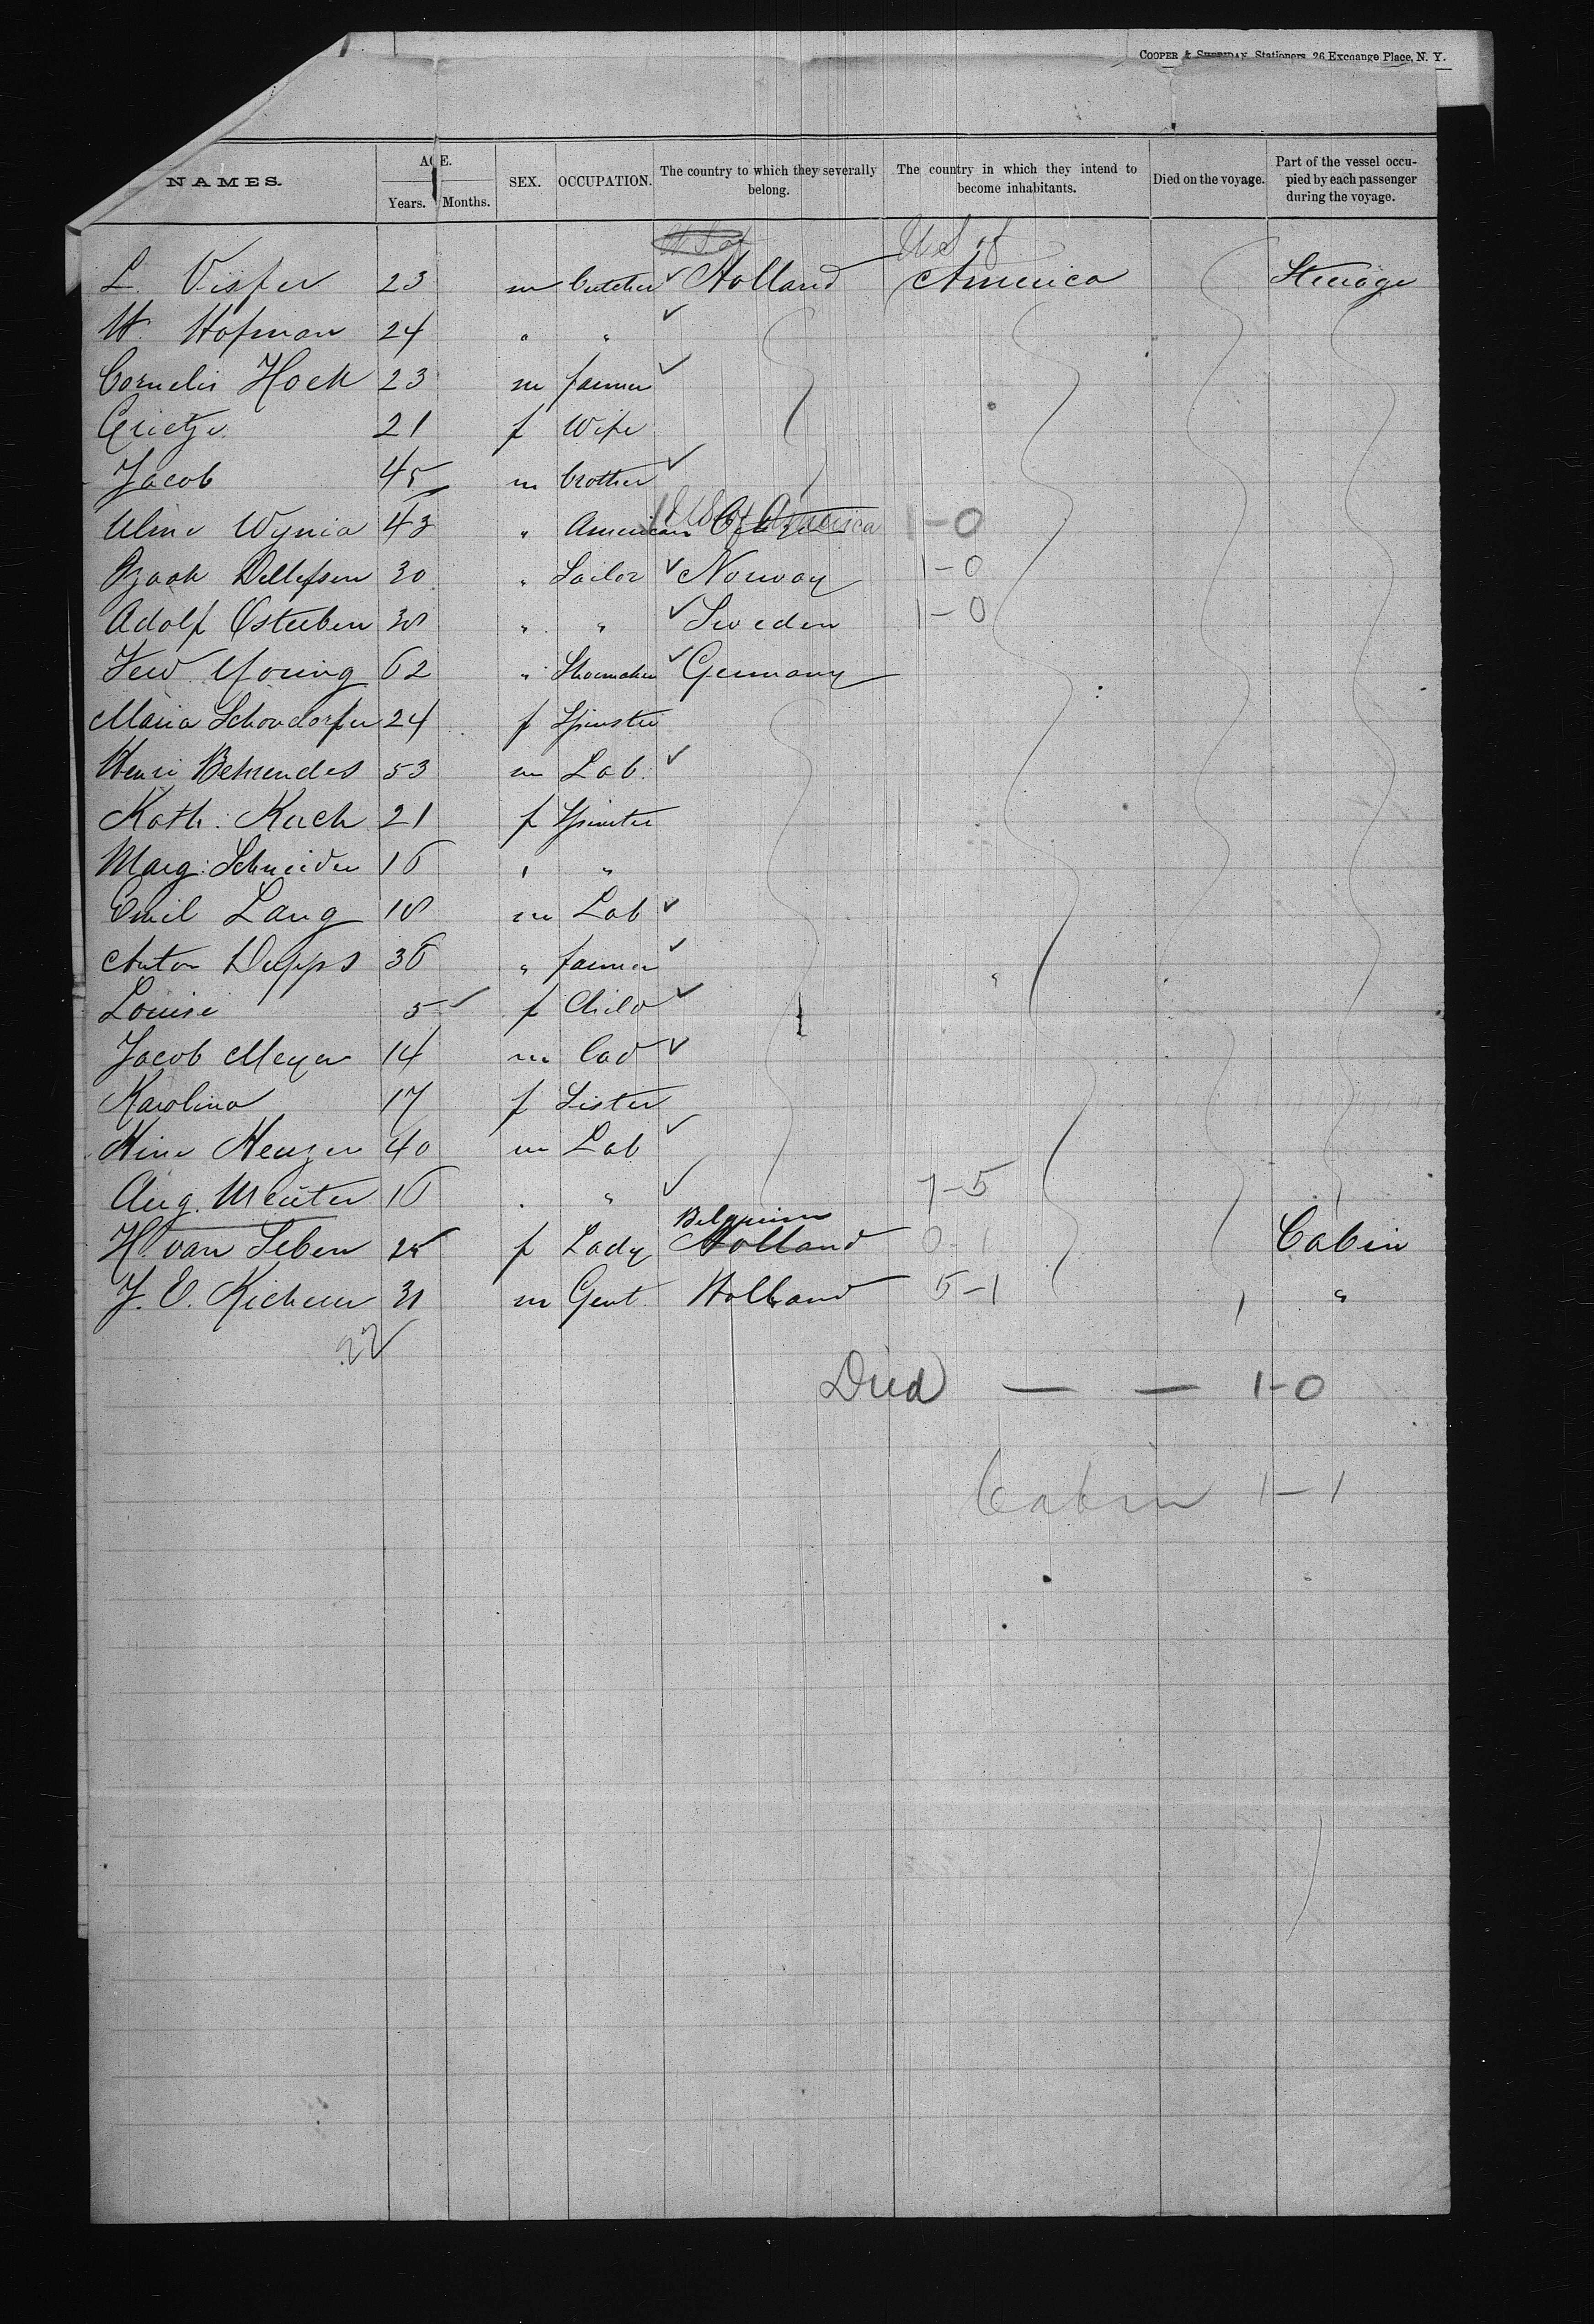 COOPER & SHERIDAN, Stationers, 26 Exchange Place, N. Y.
NAMES. AGE. Years. Months. SEX. OCCUPATION. The country to which they severally belong. The country in which they intend to become inhabitants. Died on the voyage. Part of the vessel occupied by each passenger during the voyage.
U S of U S of
L. Visser 23 m butcher ✓ Holland America Steerage
W. Hofman 24 " " ✓
Cornelis Hoek 23 m farmer ✓
Grietje 21 f Wife
Jacob 45 m brother ✓
Wynia 43 " American Citizen U S of America 1-0
Detlefsen 30 " Sailor ✓ Norway 1-0
Adolf 30 " " ✓ Sweden 1-0
Young 62 " Shoemaker ✓ Germany
Maria Schondorfer 24 f Spinster
Henri Behrendes 53 m Lab. ✓
Kath. Kuch 21 f Spinster
Marg: Schneider 16 " "
Emil Lang 18 m Lab ✓
Anton Depps 36 " farmer ✓
Louise 5 ✓ f Child ✓
Jacob Meyer 14 m Lad ✓
Karolina 17 f Sister
40 m Lab ✓
Aug. Meuter 16 " " ✓ 7-5
Belgium
H. van Seben 25 f Lady Holland 0-1 Cabin
J. E. 31 m Gent Holland 5-1 "
22 ✓
Died — — 1-0
Cabin 1-1